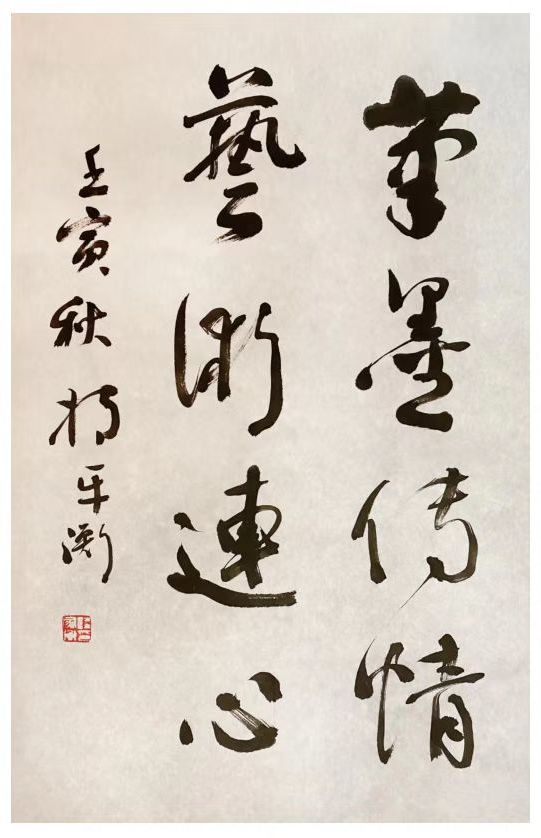 筆墨傳情
藝術連心
壬寅秋 楊平衡